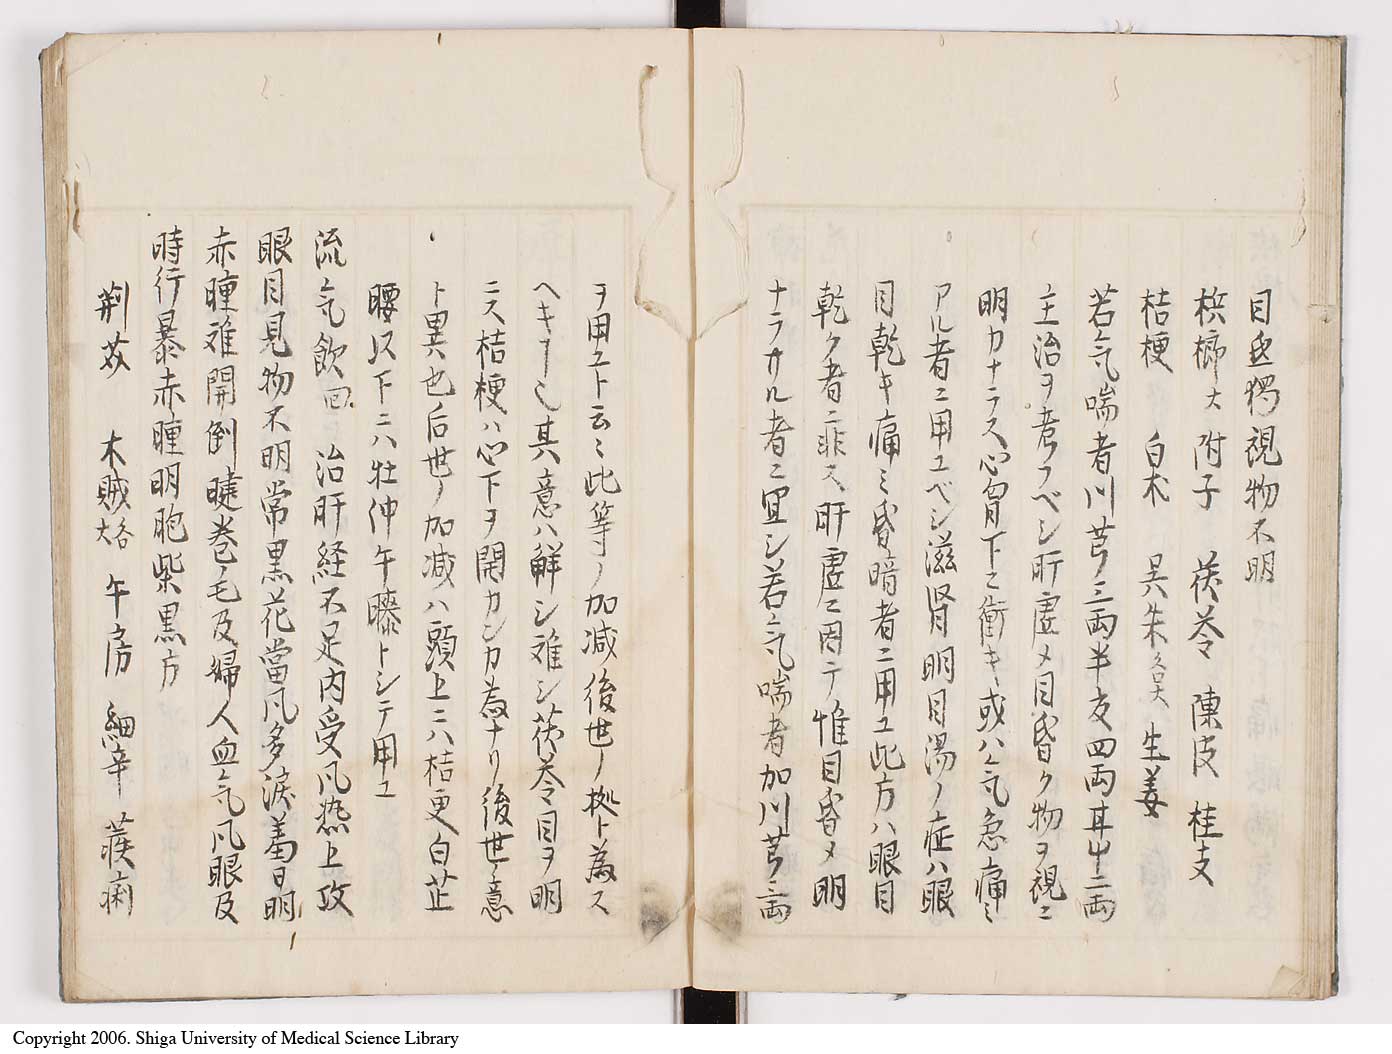 目也獨視物不明
梹榔大 附子 茯苓 陳皮 桂支
桔梗 白朮 呉朱各大 生姜
若気喘者川芎三両半夏四両甘艸二両
主治ヲ考フベシ肝虚メ目昏ク物ヲ視ニ
明カナラス心胷下ニ衝キ或ハ気急痛ミ
アル者ニ用ユベシ滋腎明目湯ノ症ハ眼
目乾キ痛ミ昏暗者ニ用ユ此方ハ眼目
乾ク者ニ非ス肝虚ニ因テ惟目昏メ明
ナラサル者ニ宜シ若気喘者加川芎三両
ヲ用ユト云ミ此等ノ加減後世ノ拠ト為ス
ヘキ其意ハ解シ難シ茯苓目ヲ明
ニス桔梗ハ心下ヲ開カンカ為ナリ後世ノ意
ト異也后世ノ加减ハ頭上ニハ桔更白芷
腰以下ニハ牡仲午膝トシテ用ユ
流気飲回 治肝経不足内受凡热上攻
眼目見物不明常黒花當凡多淚羞日明
赤瞳难開倒睫巻毛及婦人血気凡眼及
時行暴赤瞳明胞柴黒方
荆芥 木賊各大 午房 細辛 蒺䔧